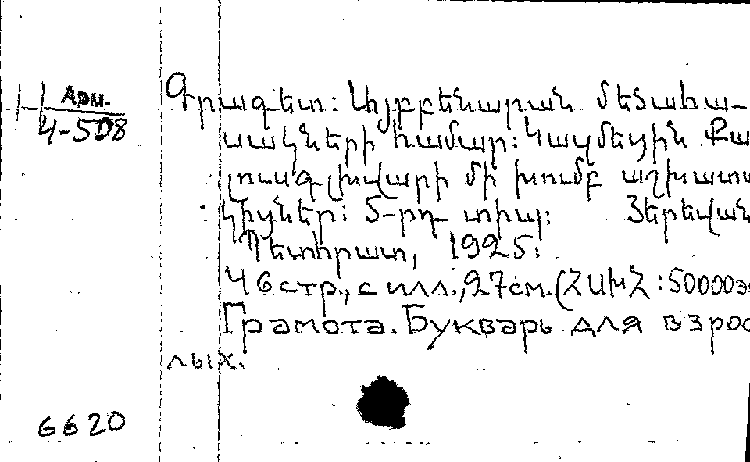 Арм.
4-508
Գրագետ: Այբբենարան մեծահա-
սակների համար: Կազմեցին Քա
լուսգլխվարի մի խումբ աշխատա
կիցներ: 5-րդ տիպ: Յերեվան
Պետհրատ, 1925:
46 стр., с илл., 27см. (ՀՍԽՀ :50000э
Грамота. Букварь для взрос
лых.
6620